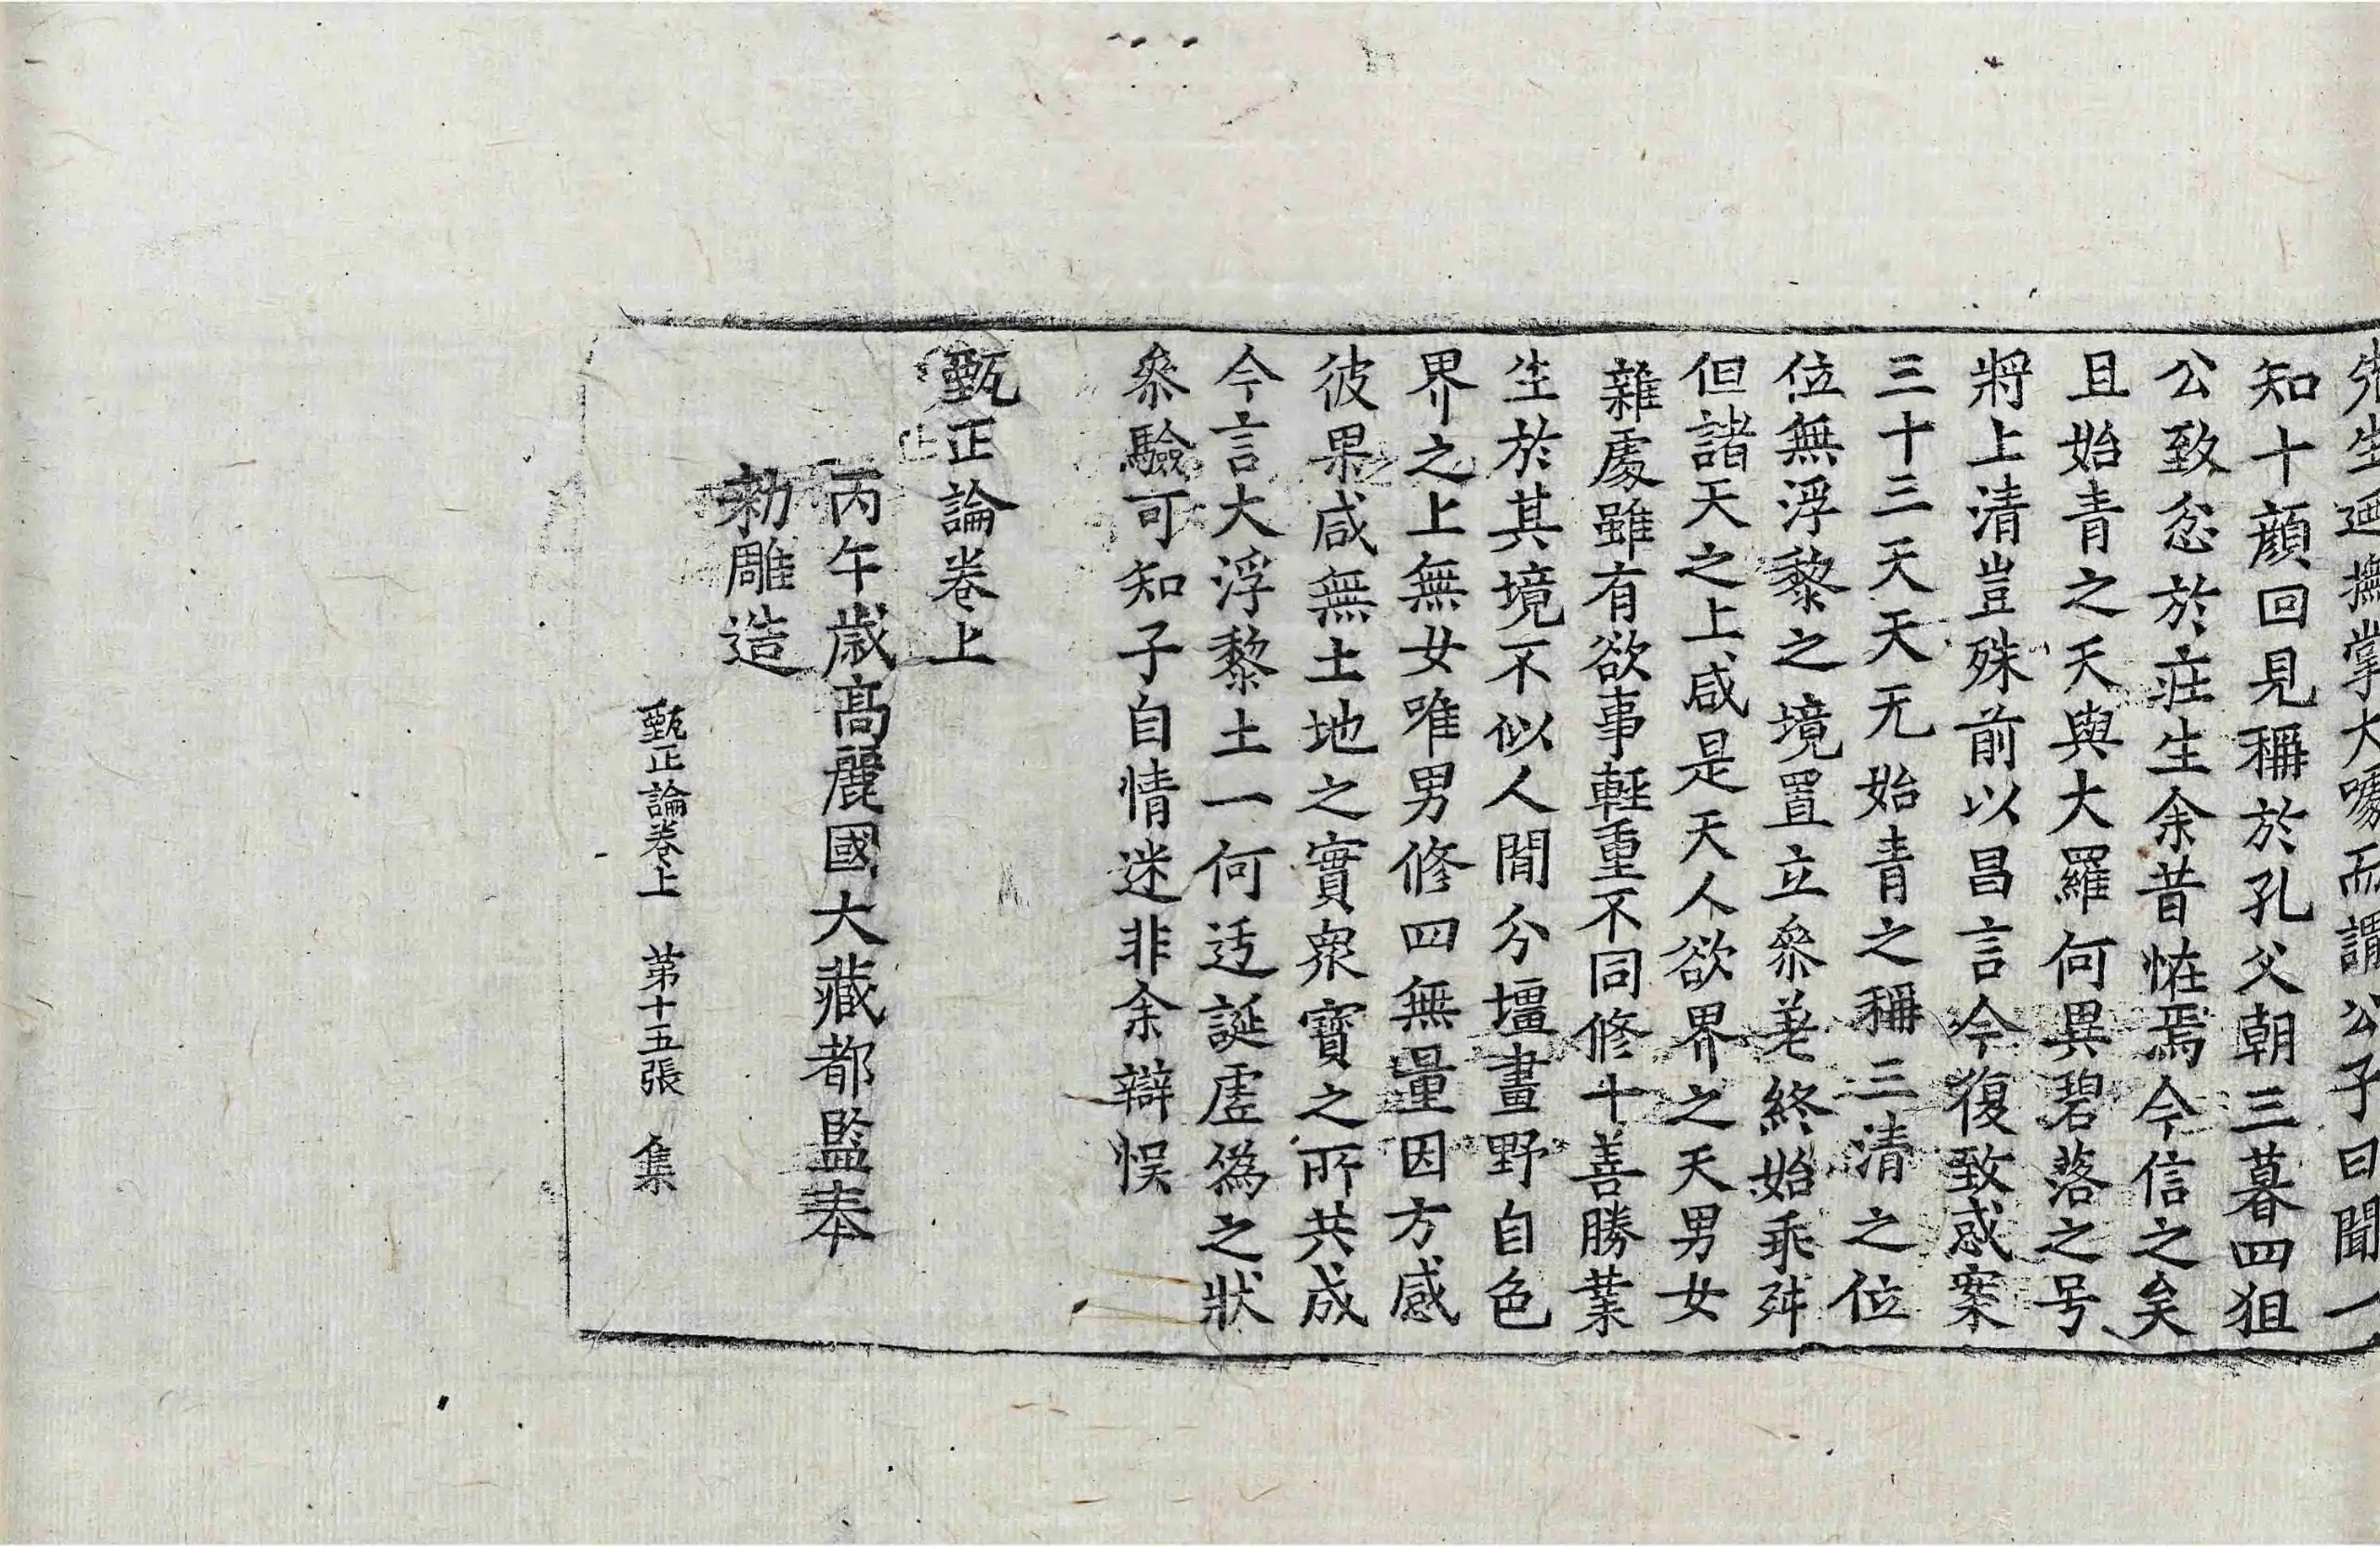 先生迺撫掌大噱而謂公子曰聞一
知十顔回見稱於孔父朝三暮四狙
公致忿於莊生余昔恠焉今信之矣
且始青之天與大羅何異碧落之号
將上清豈殊前以昌言今復致惑案
三十三天天无始青之稱三清之位
位無浮黎之境置立叅差終始乖舛
但諸天之上咸是天人欲界之天男女
雜處雖有欲事輕重不同修十善勝業
生於其境不似人間分壃畫野自色
界之上無女唯男修四無量因方感
彼果咸無土地之實衆寶之所共成
今言大浮黎土一何迃誕虛僞之狀
叅驗可知子自情迷非余辯悮
甄正論卷上
丙午歳髙麗國大藏都監奉
勑雕造
甄正論卷上　第十五張　集